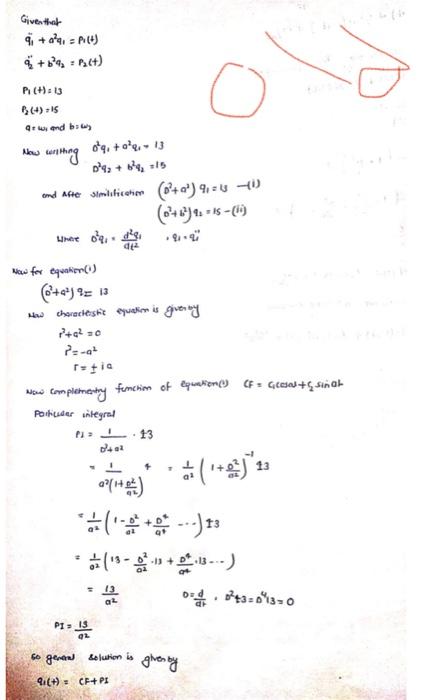 Given that
q̈₁ + a²q₁ = P₁(t)
q̈₂ + b²q₂ = P₂(t)
P₁(t) = 13
P₂(t) = 15
a = ω₁ and b = ω₂
Now writing D²q₁ + a²q₁ = 13
D²q₂ + b²q₂ = 15
and After simlification (D²+a²) q₁ = 13 —(i)
(D²+b²) q₂ = 15 —(ii)
Where D²q₁ = d²q₁/dt² , q₁ = q̈₁
Now for equation(i)
(D²+a²) q = 13
Now characteristic equation is given by
r²+a² = 0
r² = -a²
r = ± ia
Now complementry function of equation(i) CF = C₁cosat + C₂ sin at
Particular integral
PI = 1/(D²+a²) · 13
= 1/(a²(1+D²/a²)) = 1/a² (1 + D²/a²)⁻¹ 13
= 1/a² (1 - D²/a² + D⁴/a⁴ ---) 13
= 1/a² (13 - D²/a² ·13 + D⁴/a⁴ ·13 ---)
= 13/a² D = d/dt , D²13 = D⁴13 = 0
PI = 13/a²
So general solution is given by
q₁(t) = CF + PI